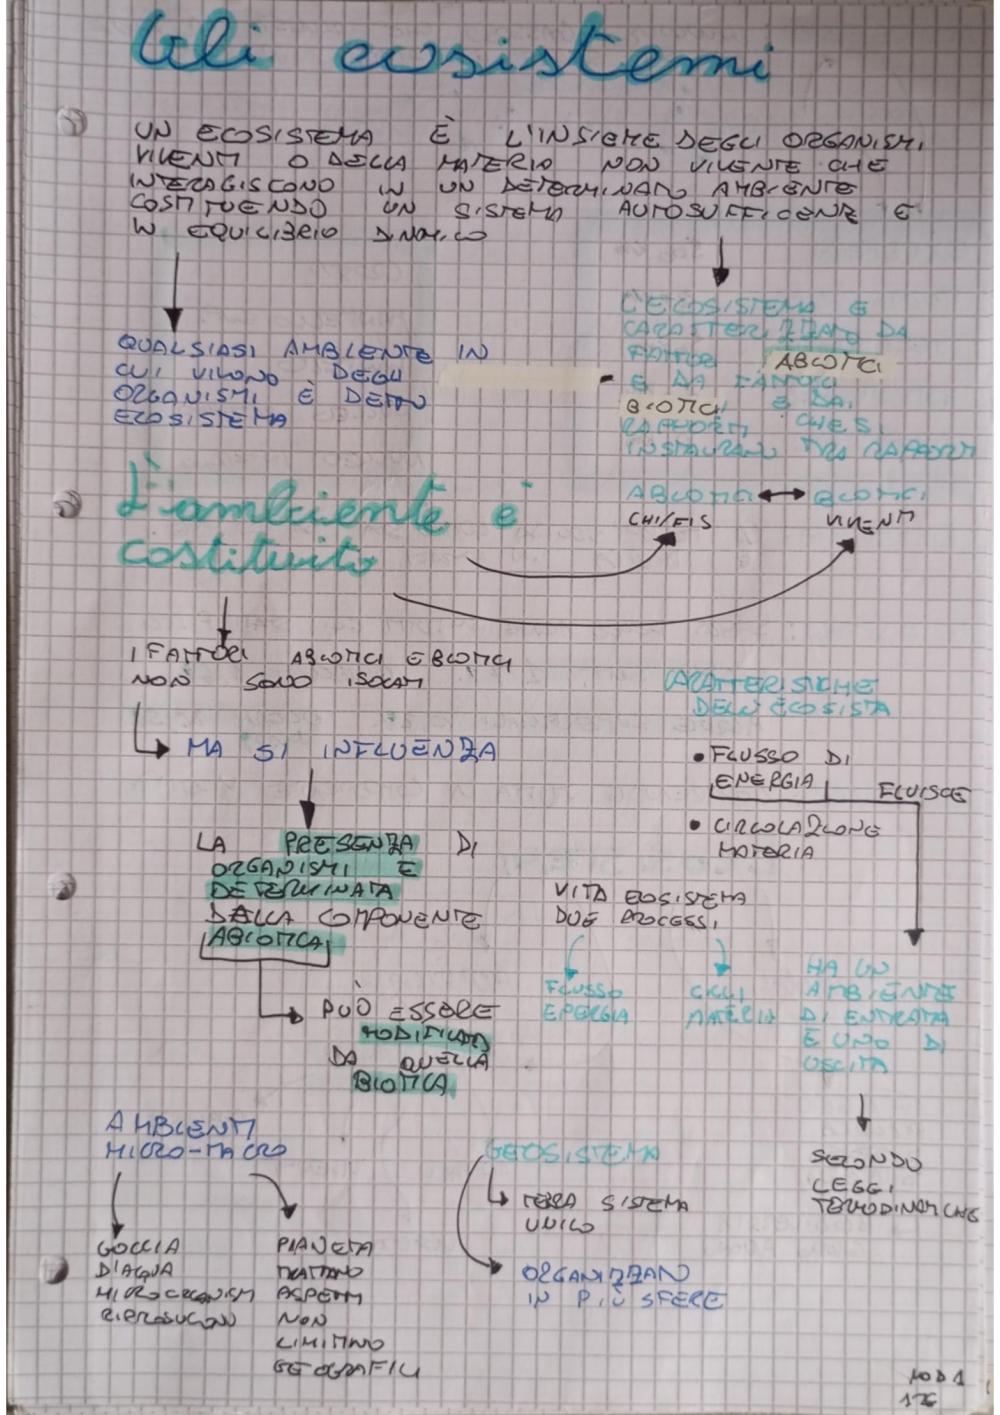 Gli ecosistemi
UN ECOSISTEMA È L'INSIEME DEGLI ORGANISMI
VIVENTI O DELLA MATERIA NON VIVENTE CHE
INTERAGISCONO IN UN DETERMINATO AMBIENTE
COSTITUENDO UN SISTEMA AUTOSUFFICENTE E
IN EQUILIBRIO DINAMICO
QUALSIASI AMBIENTE IN
CUI VIVONO DEGLI
ORGANISMI È DETTO
ECOSISTEMA
L'ECOSISTEMA È
CARATTERIZZATO DA
FATTORI ABIOTICI
E DA FATTORI
BIOTICI E DAI
RAPPORTI CHE SI
INSTAURAN TRA RAPPORTI
ABIOTICI ↔ BIOTICI
CHI/FIS VIVENTI
L'ambiente è
costituito
I FATTORI ABIOTICI E BIOTICI
NON SONO ISOLATI
MA SI INFLUENZA
LA PRESENZA DI
ORGANISMI E
DETERMINATA
DALLA COMPONENTE
ABIOTICA
PUÒ ESSERE
MODIFICATA
DA QUELLA
BIOTICA
CARATTERISTICHE
DELL ECOSISTA
• FLUSSO DI
ENERGIA FLUISCE
• CIRCOLAZIONE
MATERIA
VITA ECOSISTEMA
DUE PROCESSI
FLUSSO
ENERGIA
CICLI
MATERIA
HA UN
AMBIENTE
DI ENTRATA
E UNO DI
USCITA
SECONDO
LEGGI
TERMODINAMICHE
AMBIENTI
MICRO-MACRO
GOCCIA
D'ACQUA
MICRORGANISMI
RIPRODUCONO
PIANETA
TRATTANO
ASPETTI
NON
LIMITINO
GEOGRAFICI
GEOSISTEMA
TERRA SISTEMA
UNICO
ORGANIZZAN
IN PIÙ SFERE
MOD 1